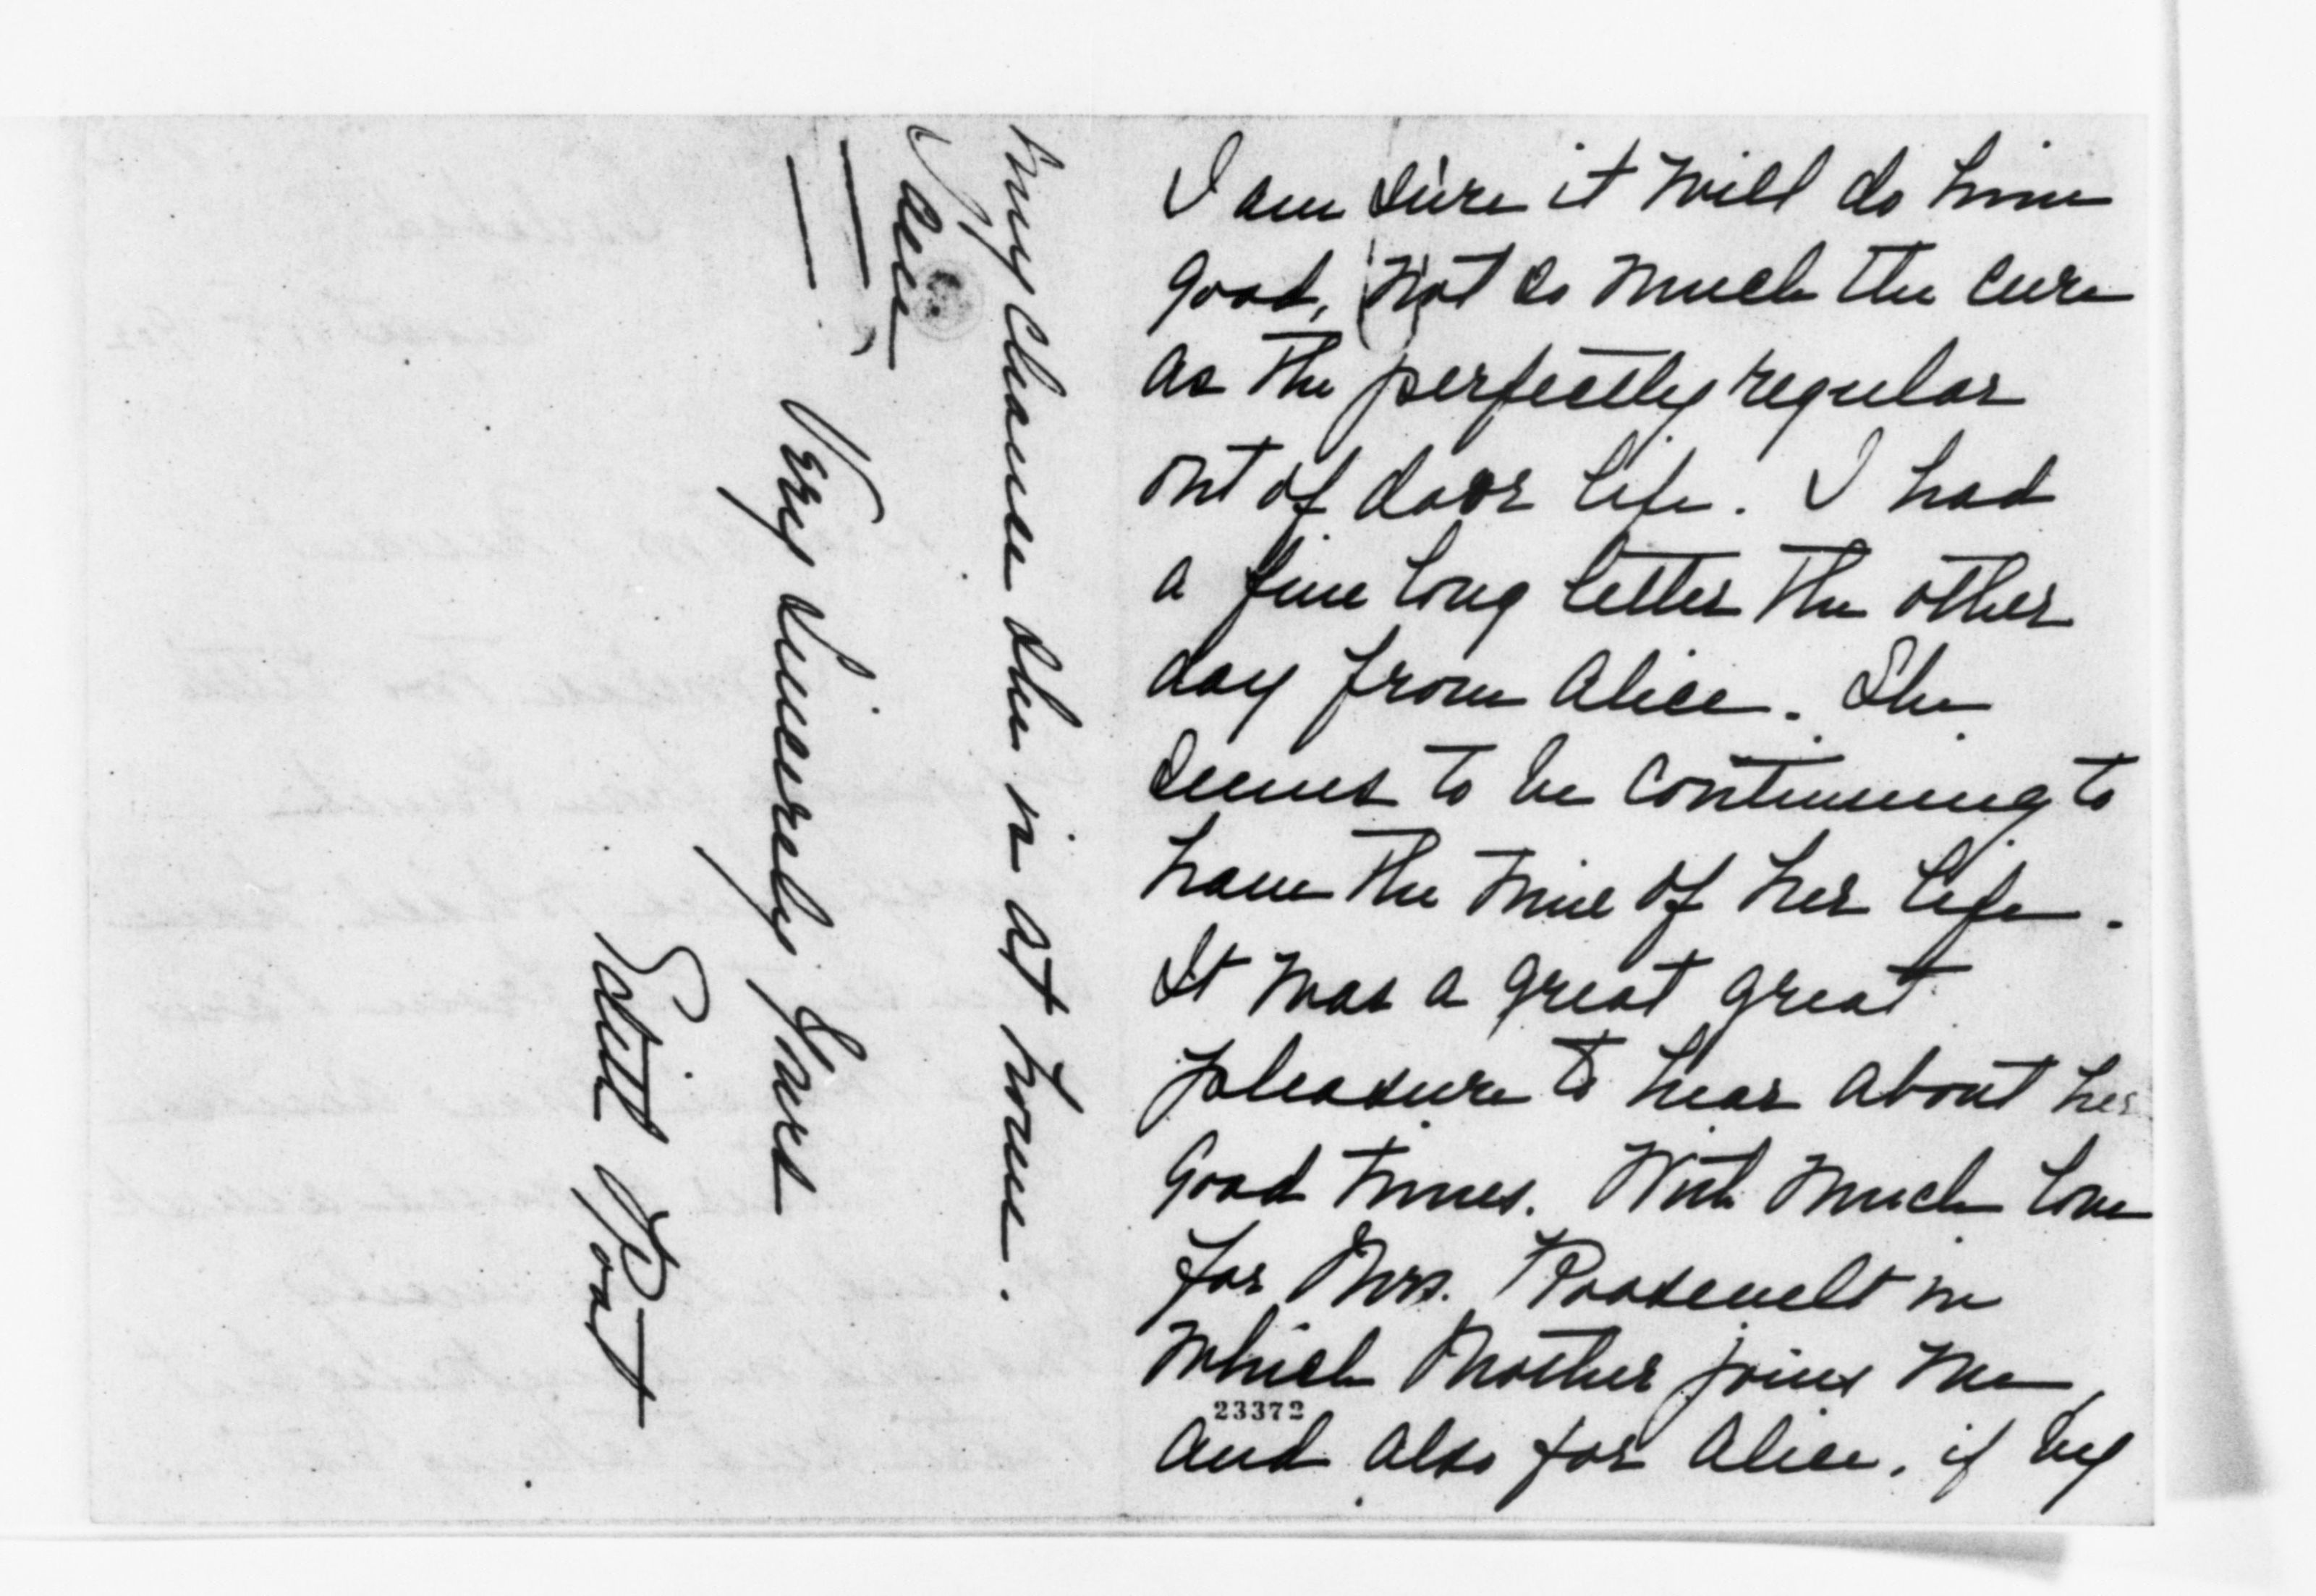 I am sure it will do him
good, not so much the cure
as the perfectly regular
out of door life. I had
a fine long letter the other
day from Alice. She
seems to be continuing to
have the time of her life.
It was a great great
pleasure to hear about her
good times. With much love
for Mrs. Roosevelt in
which Mother joins me,
23372
and also for Alice, if by
any chance she is at home.
Very sincerely yours
Edith Root